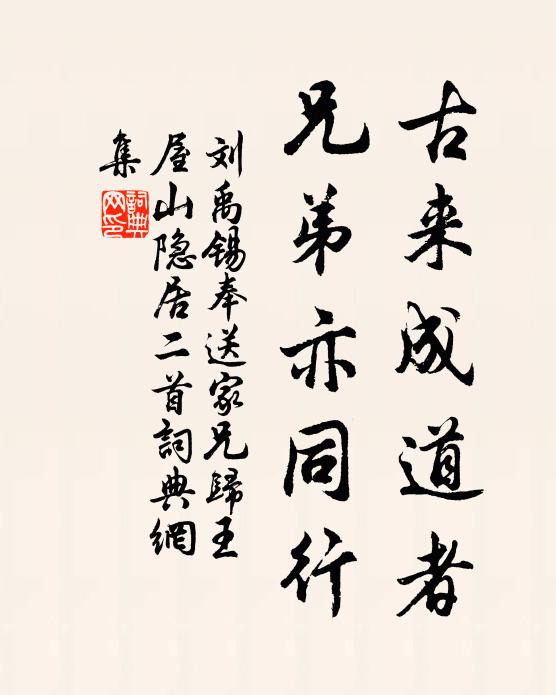 古来成道者
兄弟亦同行
刘禹锡奉送家兄歸王
屋山隐居二首詞典網
集
詞典网印